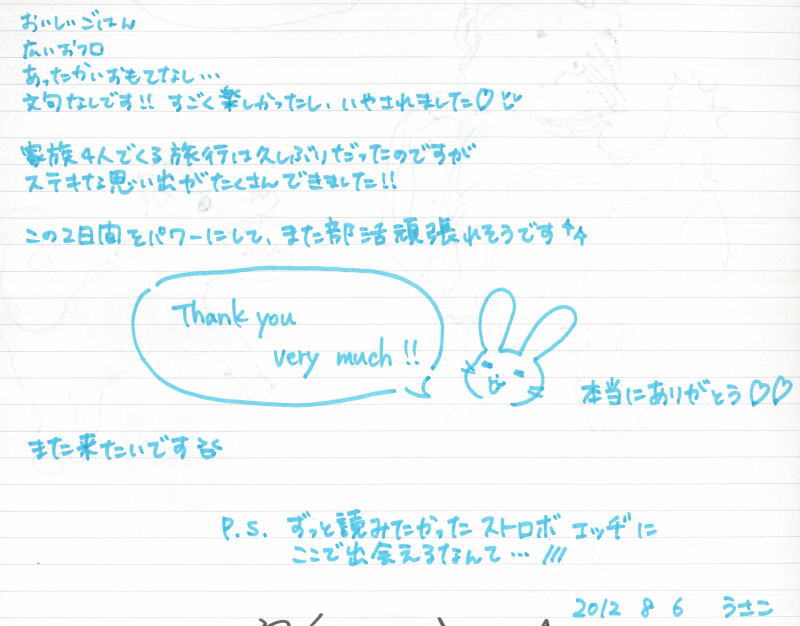 おいしいごはん
広いおフロ
あったかいおもてなし…
文句なしです!! すごく楽しかったし、いやされました♡
家族4人でくる旅行は久しぶりだったのですが
ステキな思い出がたくさんできました!!
この2日間をパワーにして、また部活頑張れそうです
Thank you
very much !!
本当にありがとう♡♡
また来たいです
P.S. ずっと読みたかったストロボエッヂに
ここで出会えるなんて… ///
2012 8 6 うさこ